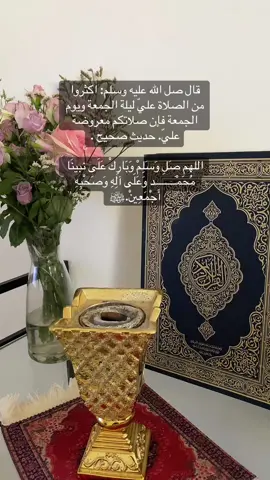 قال صل الله عليه وسلم: اكثروا
من الصلاة عليّ ليلة الجمعة ويوم
الجمعة فإن صلاتكم معروضة
عليّ. حديث صحيح .
اللهم صَل وَسلمْ وَبَارك عَلى نَبينَا
محمَــــد وعَلى آلهِ وصَحْبهِ
أجمَعينْ.ﷺ
القرآن الكريم